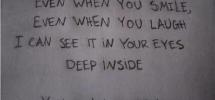 EVEN WHEN YOU SMILE,
EVEN WHEN YOU LAUGH
I CAN SEE IT IN YOUR EYES
DEEP INSIDE